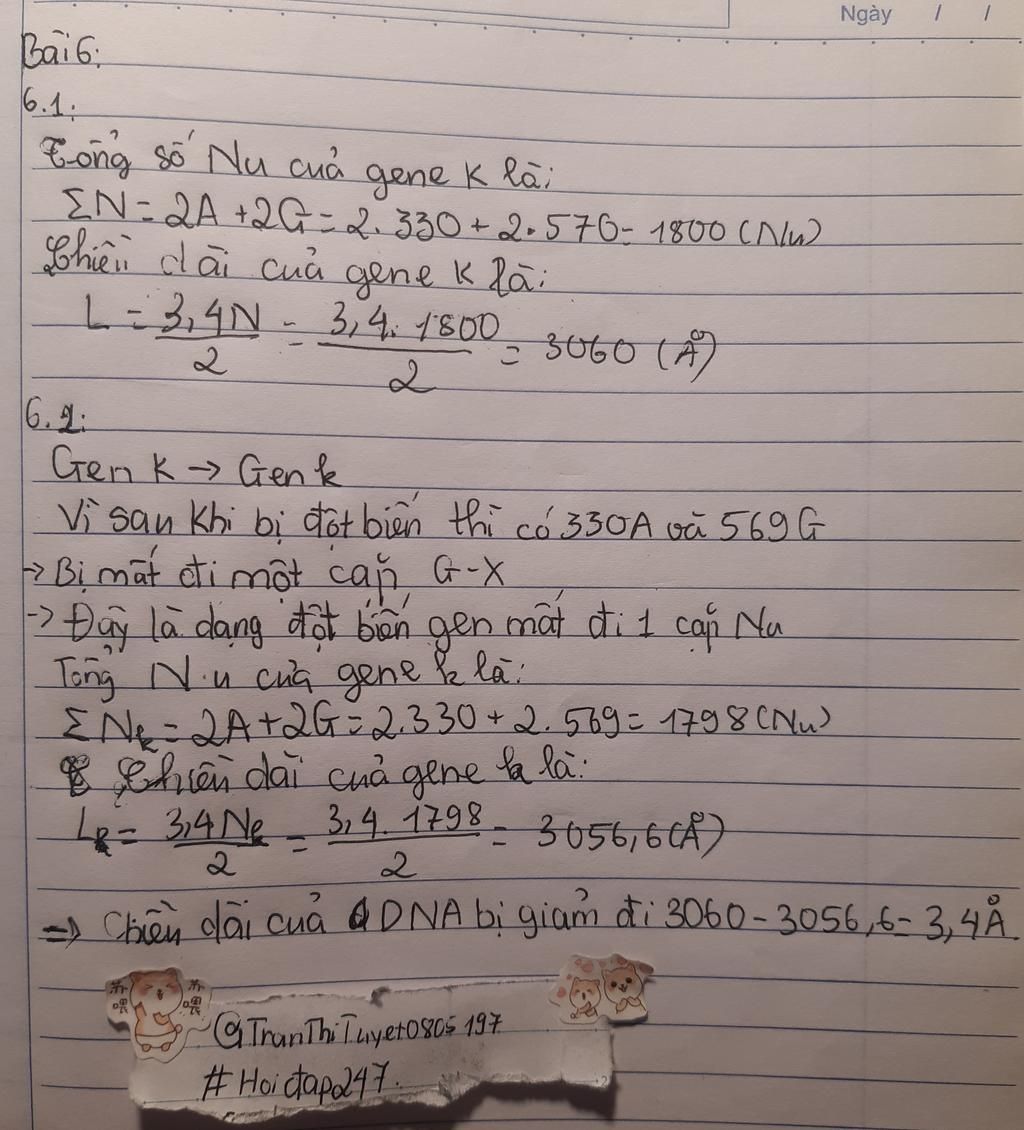 Ngày / /
Bài 6:
6.1:
Tổng số Nu cuả gene K là:
ΣN = 2A + 2G = 2.330 + 2.570 = 1800 (Nu)
Chiều dài cuả gene K là:
L = 3,4N/2 = 3,4.1800/2 = 3060 (Å)
6.2:
Gen K → Gen k
Vì sau khi bị đột biến thì có 330A và 569G
→ Bị mất đi một cặp G-X
→ Đây là dạng đột biến gen mất đi 1 cặp Nu
Tổng N.u cuả gene k là:
ΣNk = 2A + 2G = 2.330 + 2.569 = 1798 (Nu)
Chiều dài cuả gene k là:
Lk = 3,4Nk/2 = 3,4.1798/2 = 3056,6 (Å)
⇒ Chiều dài cuả DNA bị giảm đi 3060 - 3056,6 = 3,4Å.
@TranThiTuyet0805197
#Hoidap247.